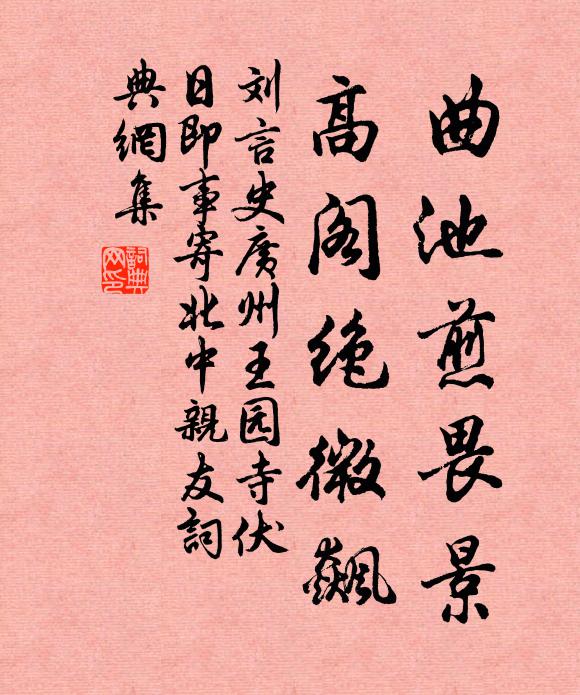 曲池煎畏景
高阁绝微飙
刘言史广州王园寺伏
日即事寄北中親友詞
典網集
詞典網印